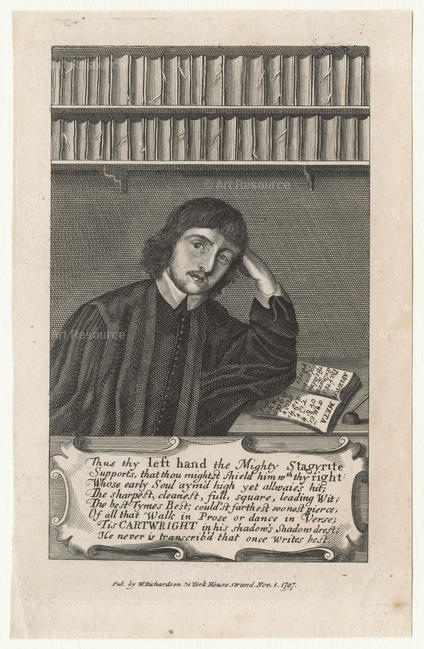 © Art Resource
Art Resource
Art Resource
META
Thus thy left hand the Mighty Stagyrite
Supports, that thou mightst shield him wth thy right:
Whose early Soul aym'd high yet allwaies hit;
The sharpest, cleanest, full, square, leading Wit;
The best Tymes Best; could'st farthest soonest pierce,
Of all that Walk in Prose or dance in Verse;
Tis CARTWRIGHT in his shadow's Shadow drest;
He never is transcrib'd that once writes best.
Pub. by W. Richardson York House Strand Nov. 1. 1797.